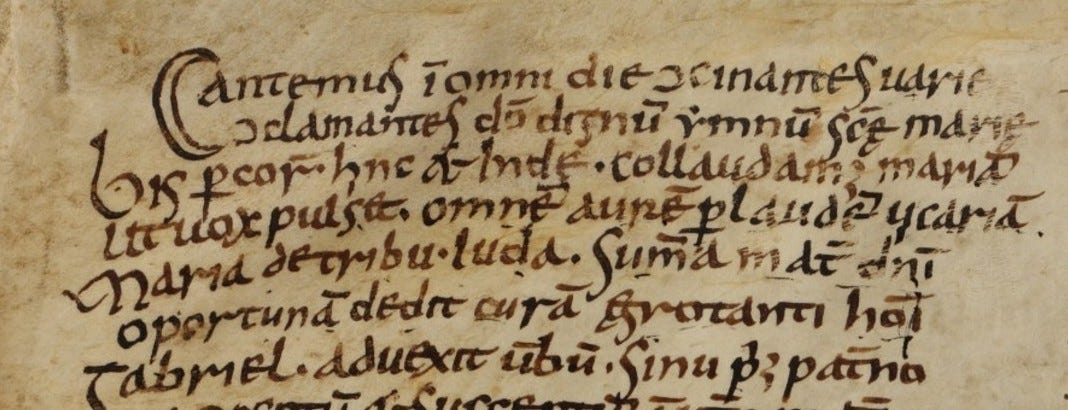 Cantemus ī omni die ↄcinantes uarie
ↄclamantes dō dignū ẏmnū scē marię
bis ꝑ cor̄· hīc & inde· collaudam᷒ mariā
ut uox pulset· omnē aurē ꝑ laudē uicariā.
Maria de tribu· Iuda· Sum̄a mat̄ dn̄ī
oportunā dedit curā ęgrotanti hoī
Gabriel· aduexit ūbū· Sinu pꝫ pat̄no